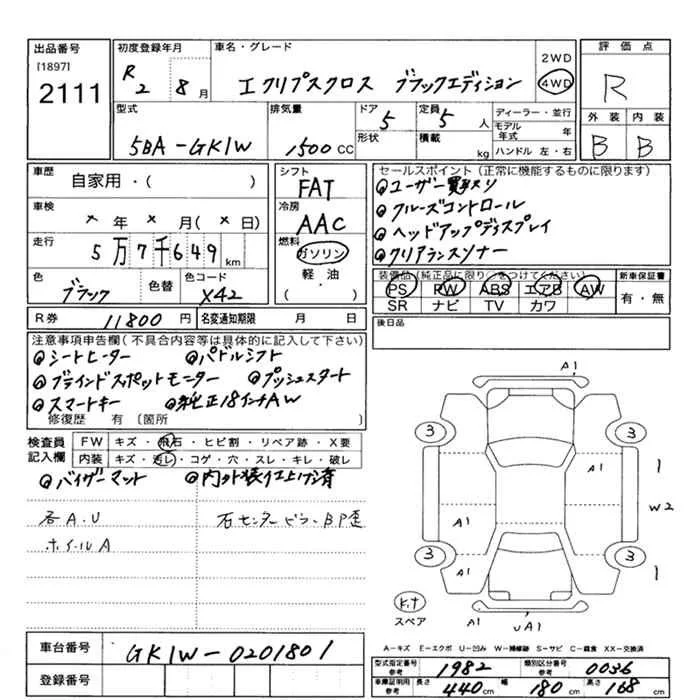 出品番号 初度登録年月 車名・グレード 評価点
[1897] 2111
R 2 8月
エクリプスクロス ブラックエディション
2WD
4WD
R
外装 内装
B B
型式 排気量 ドア 定員 ディーラー・並行
5BA-GK1W 1500CC 5 5人
モデル年式 年
形状 積載 kg ハンドル 左・右
車歴 自家用・( )
シフト FAT
セールスポイント(正常に機能するものに限ります)
ユーザー買取り
クルーズコントロール
ヘッドアップディスプレイ
クリアランスソナー
車検 × 年 × 月(× 日)
冷房 AAC
走行 5万7千649km
燃料 ガソリン
軽・油
・( )
色 ブラック 色替 色コード X42
装備品(純正品に限り○をつけてください) 新車保証書
PS PW ABS エアB AW 有・無
SR ナビ TV カワ
R券 11800円 名変通知期限 月 日
後日品
注意事項申告欄(不具合内容等は具体的に記入して下さい)
シートヒーター パドルシフト
ブラインドスポットモニター プッシュスタート
スマートキー 純正18インチAW
修復歴 有〔箇所 〕
検査員記入欄
FW キズ・飛石・ヒビ割・リペア跡・X要
内装 キズ・汚レ・コゲ・穴・スレ・キレ・破レ
バイザーマット 内外装仕上げ済
各A.U 右センターピラーBP歪
ホイールA
A1
3 3
A1 1
A1 W2
3 3
A1 1
スペア
A1 UA1
A-キズ E-エクボ U-凹み W-補修跡 S-サビ C-腐食 XX-交換済
車台番号 GK1W-0201801
登録番号
型式指定番号 参考 1982 類別区分番号 参考 0036
車庫証明用 参考 長さ 440cm 幅 180cm 高さ 168cm